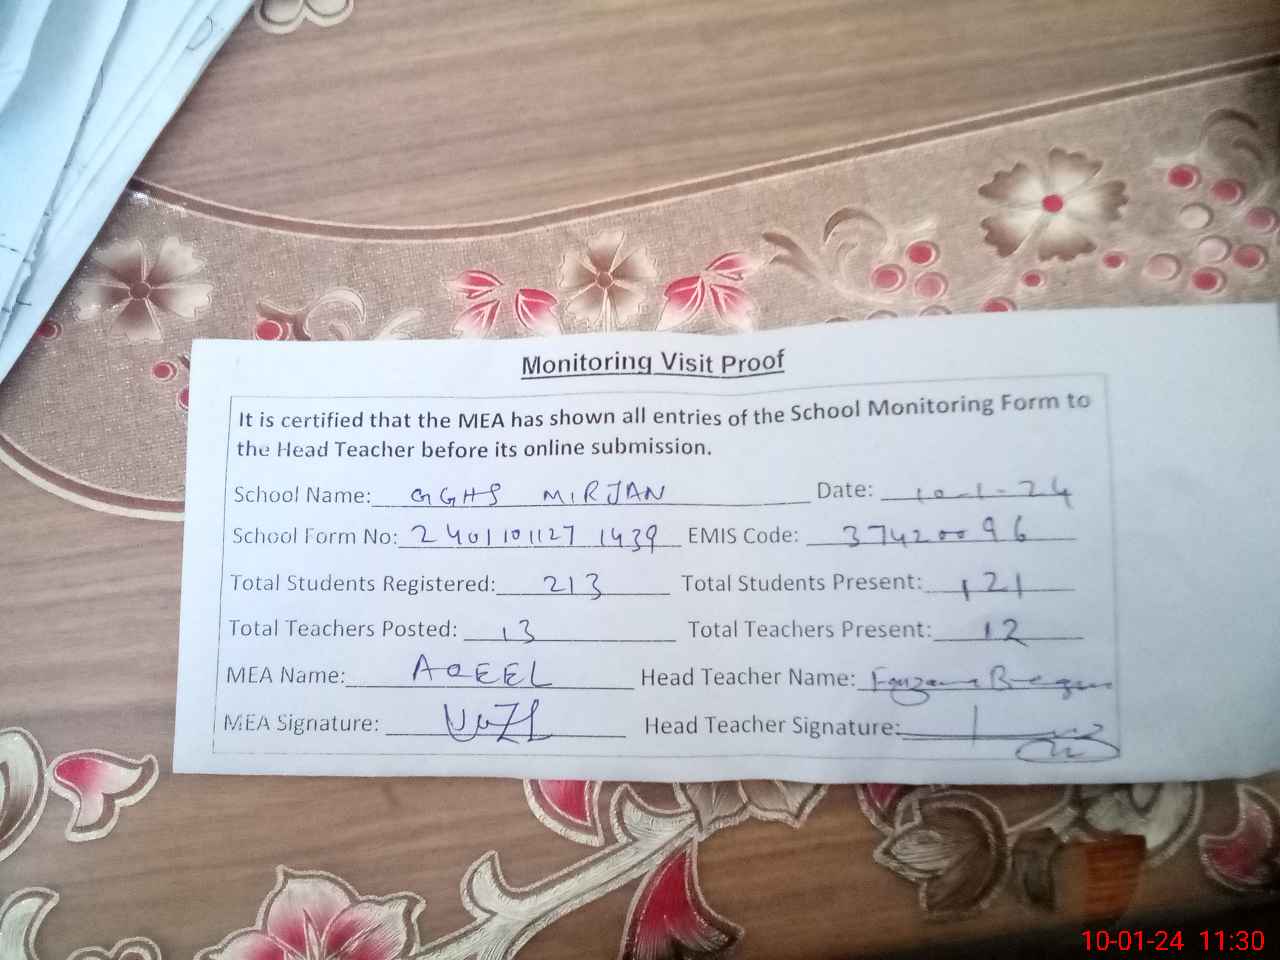 Monitoring Visit Proof
It is certified that the MEA has shown all entries of the School Monitoring Form to
the Head Teacher before its online submission.
School Name: GGHS MIRJAN Date: 10-1-24
School Form No: 2401101127 1439 EMIS Code: 37420096
Total Students Registered: 213 Total Students Present: 121
Total Teachers Posted: 13 Total Teachers Present: 12
MEA Name: AQEEL Head Teacher Name:
MEA Signature: Head Teacher Signature:
10-01-24 11:30